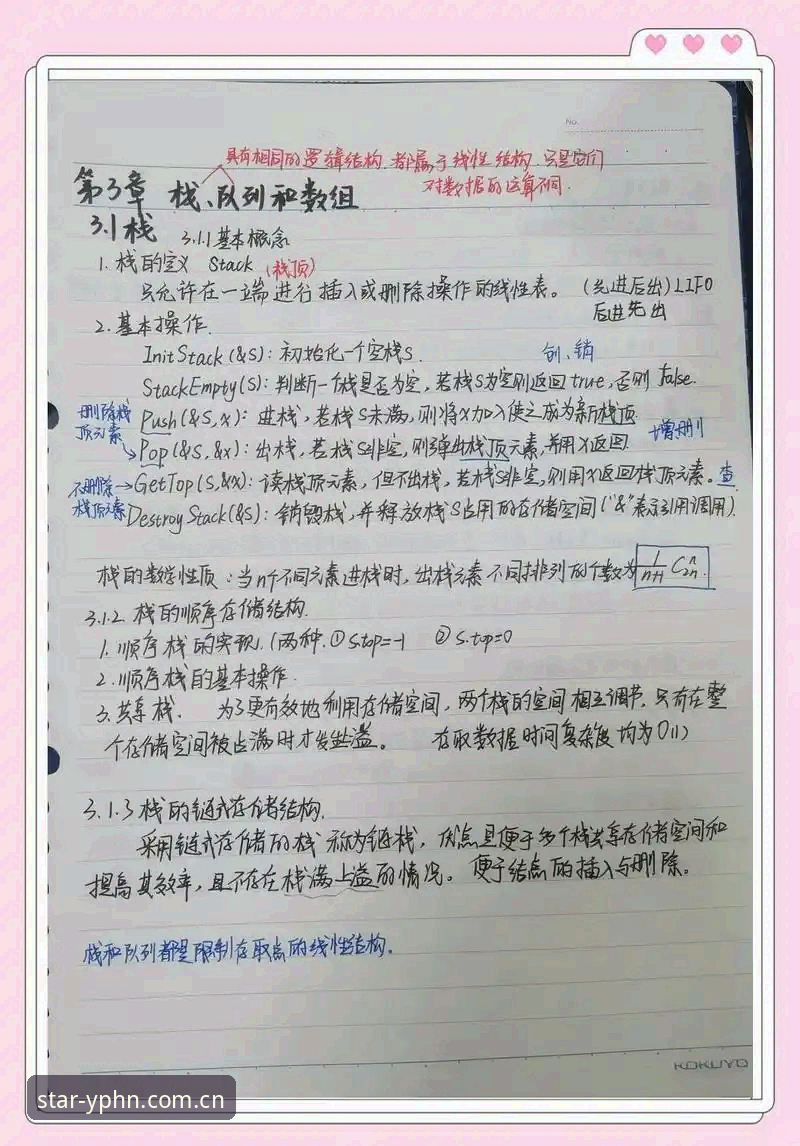 No.
具有相同的逻辑结构.都属于线性结构.只是它们
对数据的运算不同.
第3章 栈、队列和数组
3.1 栈 3.1.1 基本概念
1. 栈的定义 Stack (栈顶)
只允许在一端进行插入或删除操作的线性表。 (先进后出) LIFO
后进先出
2. 基本操作.
InitStack(&S): 初始化一个空栈S. 创、销
StackEmpty(S): 判断一个栈是否为空, 若栈S为空则返回true, 否则 false.
Push(&S, x): 进栈, 若栈S未满, 则将x加入使之成为新栈顶
删除栈
顶元素
Pop(&S, &x): 出栈, 若栈S非空, 则弹出栈顶元素, 并用x返回. 增、删
不删除→GetTop(S, &x): 读栈顶元素, 但不出栈, 若栈S非空, 则用x返回栈顶元素。查
栈顶元素
DestroyStack(&S): 销毁栈, 并释放栈S占用的存储空间("&"表示引用调用).
栈的数学性质: 当n个不同元素进栈时, 出栈元素不同排列的个数为 1/(n+1) C_{2n}^{n}.
3.1.2 栈的顺序存储结构.
1. 顺序栈的实现. (两种. ① S.top=-1 ② S.top=0
2. 顺序栈的基本操作.
3. 共享栈. 为了更有效地利用存储空间, 两个栈的空间相互调节, 只有在整
个存储空间被占满时才发生上溢。 存取数据时间复杂度均为O(1)
3.1.3 栈的链式存储结构.
采用链式存储的栈称为链栈, 优点是便于多个栈共享存储空间和
提高其效率, 且不存在栈满上溢的情况。 便于结点的插入与删除。
栈和队列都是限制存取点的线性结构.
KOKUYO
star-yphn.com.cn